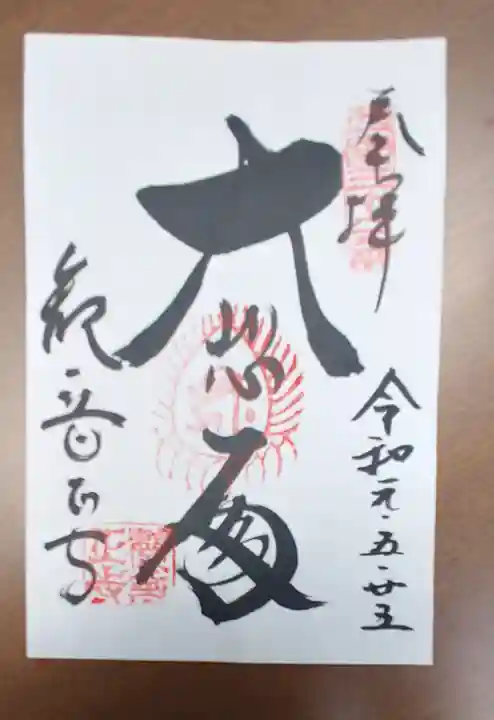 奉拝
令和元・五・廿五
大悲殿
観音正寺